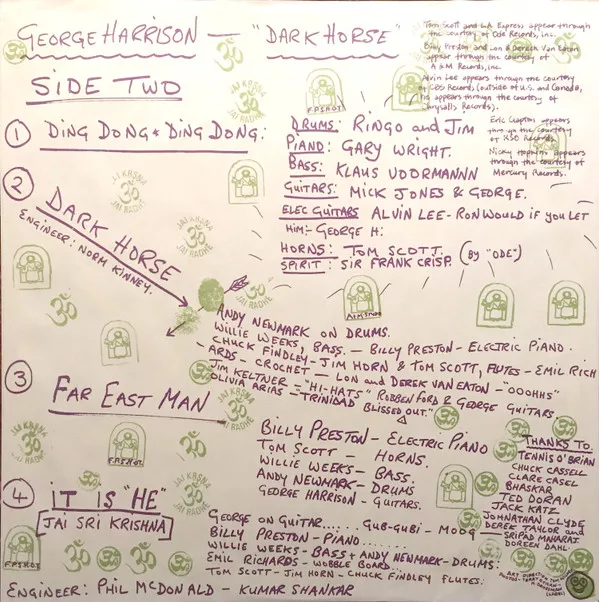 GEORGE HARRISON — "DARK HORSE"
SIDE TWO
Tom Scott and L.A. Express appear through
the courtesy of Ode Records, inc.
Billy Preston and Lon & Derrek Van Eaton
appear through the courtesy of
A & M Records, inc
Alvin Lee appears through the courtesy
of CBS Records (outside of U.S. and Canada,
he appears through the courtesy of
Chrysalis Records).
Eric Clapton appears
through the courtesy
of RSO Records
Nicky Hopkins appears
through the courtesy of
Mercury Records.
① DING DONG * DING DONG:
DRUMS: RINGO and JIM
PIANO: GARY WRIGHT.
BASS: KLAUS VOORMANN
GUITARS: MICK JONES & GEORGE.
ELEC GUITARS ALVIN LEE - RON WOULD IF YOU LET
HIM - GEORGE H:
HORNS: TOM SCOTT. (BY "ODE")
SPIRIT: SIR FRANK CRISP.
② DARK HORSE
ENGINEER: NORM KINNEY.
ANDY NEWMARK ON DRUMS.
WILLIE WEEKS, BASS. — BILLY PRESTON - ELECTRIC PIANO.
CHUCK FINDLEY - JIM HORN & TOM SCOTT, FLUTES - EMIL RICH
-ARDS - CROCHET — LON and DEREK VAN EATON - "OOOHHS"
JIM KELTNER - "HI-HATS" ROBBEN FORD & GEORGE GUITARS
OLIVIA ARIAS - "TRINIDAD BLISSED OUT."
③ FAR EAST MAN
BILLY PRESTON - ELECTRIC PIANO
TOM SCOTT - HORNS.
WILLIE WEEKS - BASS.
ANDY NEWMARK - DRUMS
GEORGE HARRISON - GUITARS.
④ iT iS "HE"
JAI SRI KRISHNA
GEORGE ON GUITAR..... GUB-GUBI - MOOG
BILLY PRESTON - PIANO......
WILLIE WEEKS - BASS + ANDY NEWMARK - DRUMS:
EMIL RICHARDS - WOBBLE BOARD.
TOM SCOTT - JIM HORN - CHUCK FINDLEY FLUTES:
ENGINEER: PHIL MCDONALD - KUMAR SHANKAR
THANKS TO.
TENNIS O'BRIAN
CHUCK CASSELL
CLARE CASEL
BHASKAR
TED DORAN
JACK KATZ
JOHNATHAN CLYDE
DEREK TAYLOR and
SRIPAD MAHARAJ.
DOREEN DAHL.
JAI KRSNA
ॐ
JAI RADHE
F.P.S.H.O.T.